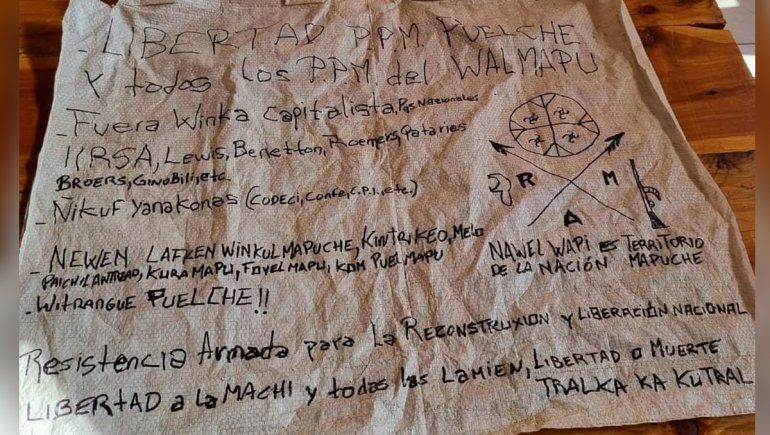 - LIBERTAD P.P.M. PUELCHE
Y todos los P.P.M. del WALMAPU
- Fuera Winka Capitalista, Pqs Nacionales
IIRSA, Lewis, Benetton, Roemers, Qataries
BROERS, GinoBili, etc.
- Ñikuf Yanakonas (CODECI, Confe, C.P.I., etc.)
- NEWEN LAFKEN WINKULMAPUCHE, KINTRIKEO, Melo
PAICHIL ANTREAO, KURA MAPU, FOYEL MAPU, KOM PUEL MAPU
- WITRANGUE PUELCHE!!
R M
A
NAWEL WAPI es TERRITORIO
DE LA NACIÓN MAPUCHE
Resistencia Armada para La RECONSTRUXION y LIBERACIÓN NACIONAL
LIBERTAD a la MACHI y todas las LAMIEN, LIBERTAD o MUERTE
TRALKA KA KUTRAL